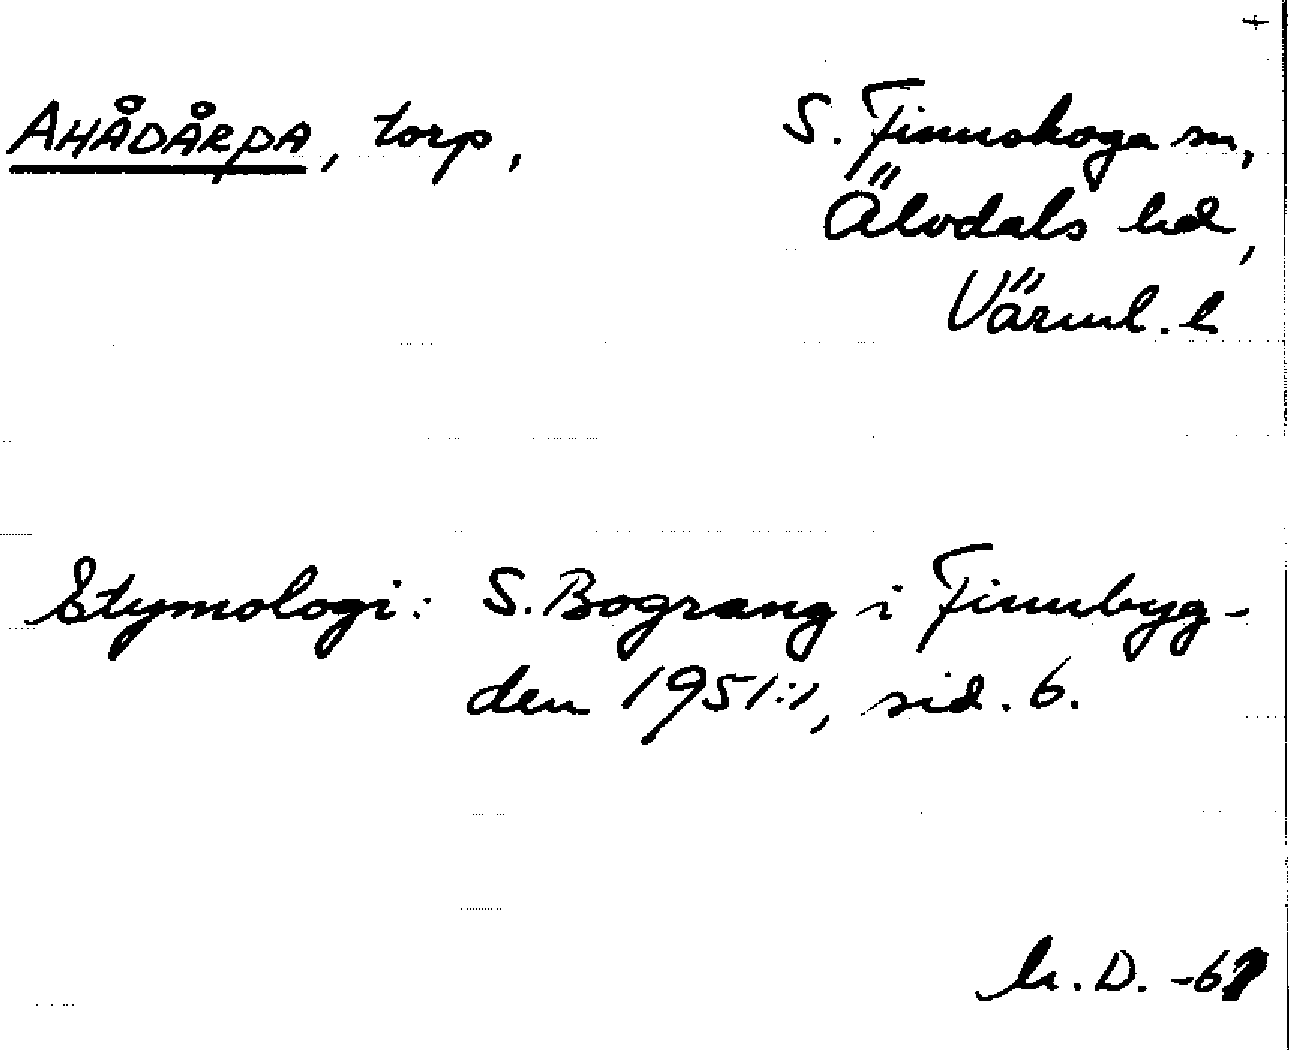 +
AHÅDÅRPA, torp, S. Finnskoga sn,
Älvdals hd,
Värml. l
Etymologi: S. Bograng i Finnbyg-
den 1951:1, sid. 6.
D.